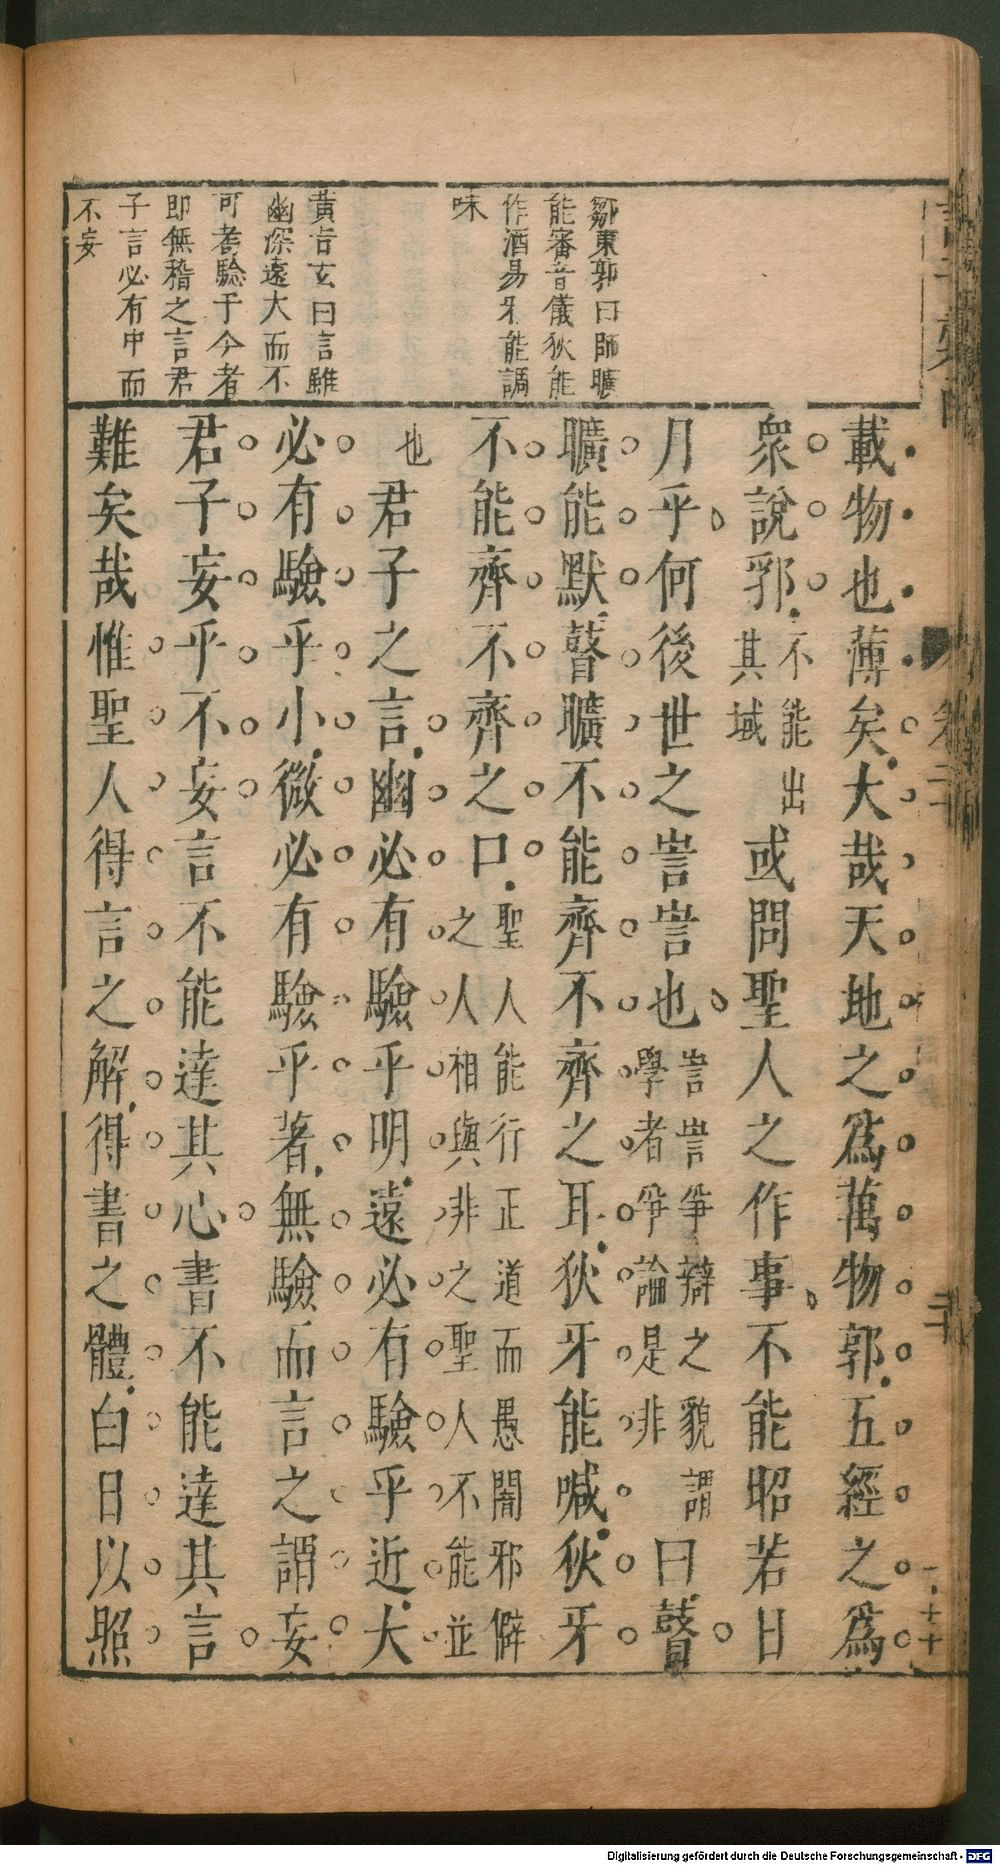 鄒東郭曰師曠
能審音儀狄能
作酒易牙能調
味
黃吉玄曰言雖
幽深遠大而不
可考驗于今者
即無稽之言君
子言必有中而
不妄
載物也薄矣大哉天地之爲萬物郭五經之爲
衆說郛不能出其域或問聖人之作事不能昭若日
月乎何後世之訔訔也訔訔爭辯之貌謂學者爭論是非曰瞽
曠能默瞽曠不能齊不齊之耳狄牙能喊狄牙
不能齊不齊之口聖人能行正道而愚闇邪僻之人相與非之聖人不能並
也君子之言幽必有驗乎明遠必有驗乎近大
必有驗乎小微必有驗乎著無驗而言之謂妄
君子妄乎不妄言不能達其心書不能達其言
難矣哉惟聖人得言之解得書之體白日以照
Digitalisierung gefördert durch die Deutsche Forschungsgemeinschaft - DFG